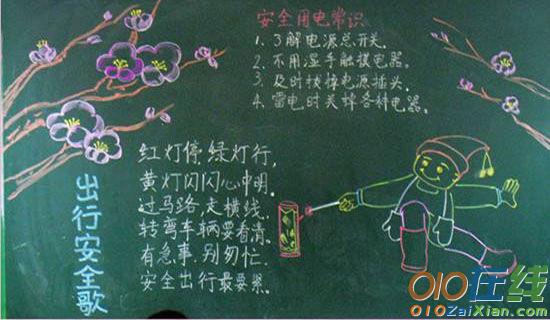 安全用电常识
1、了解电源总开关。
2、不用湿手触摸电器。
3、及时拔掉电源插头。
4、雷电时关掉各种电器。
出行安全歌
红灯停,绿灯行,
黄灯闪闪心中明。
过马路,走横线,
转弯车辆要看清。
有急事,别匆忙,
安全出行最要紧。
010在线
010ZaiXian.com